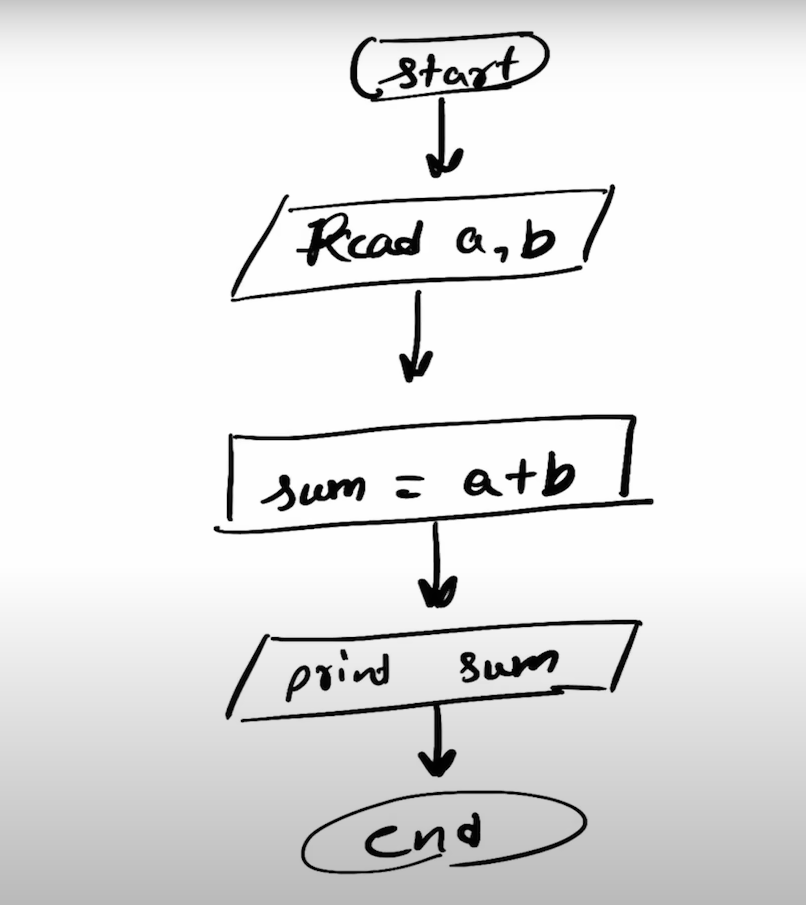 start
Read a, b
sum = a+b
print sum
end